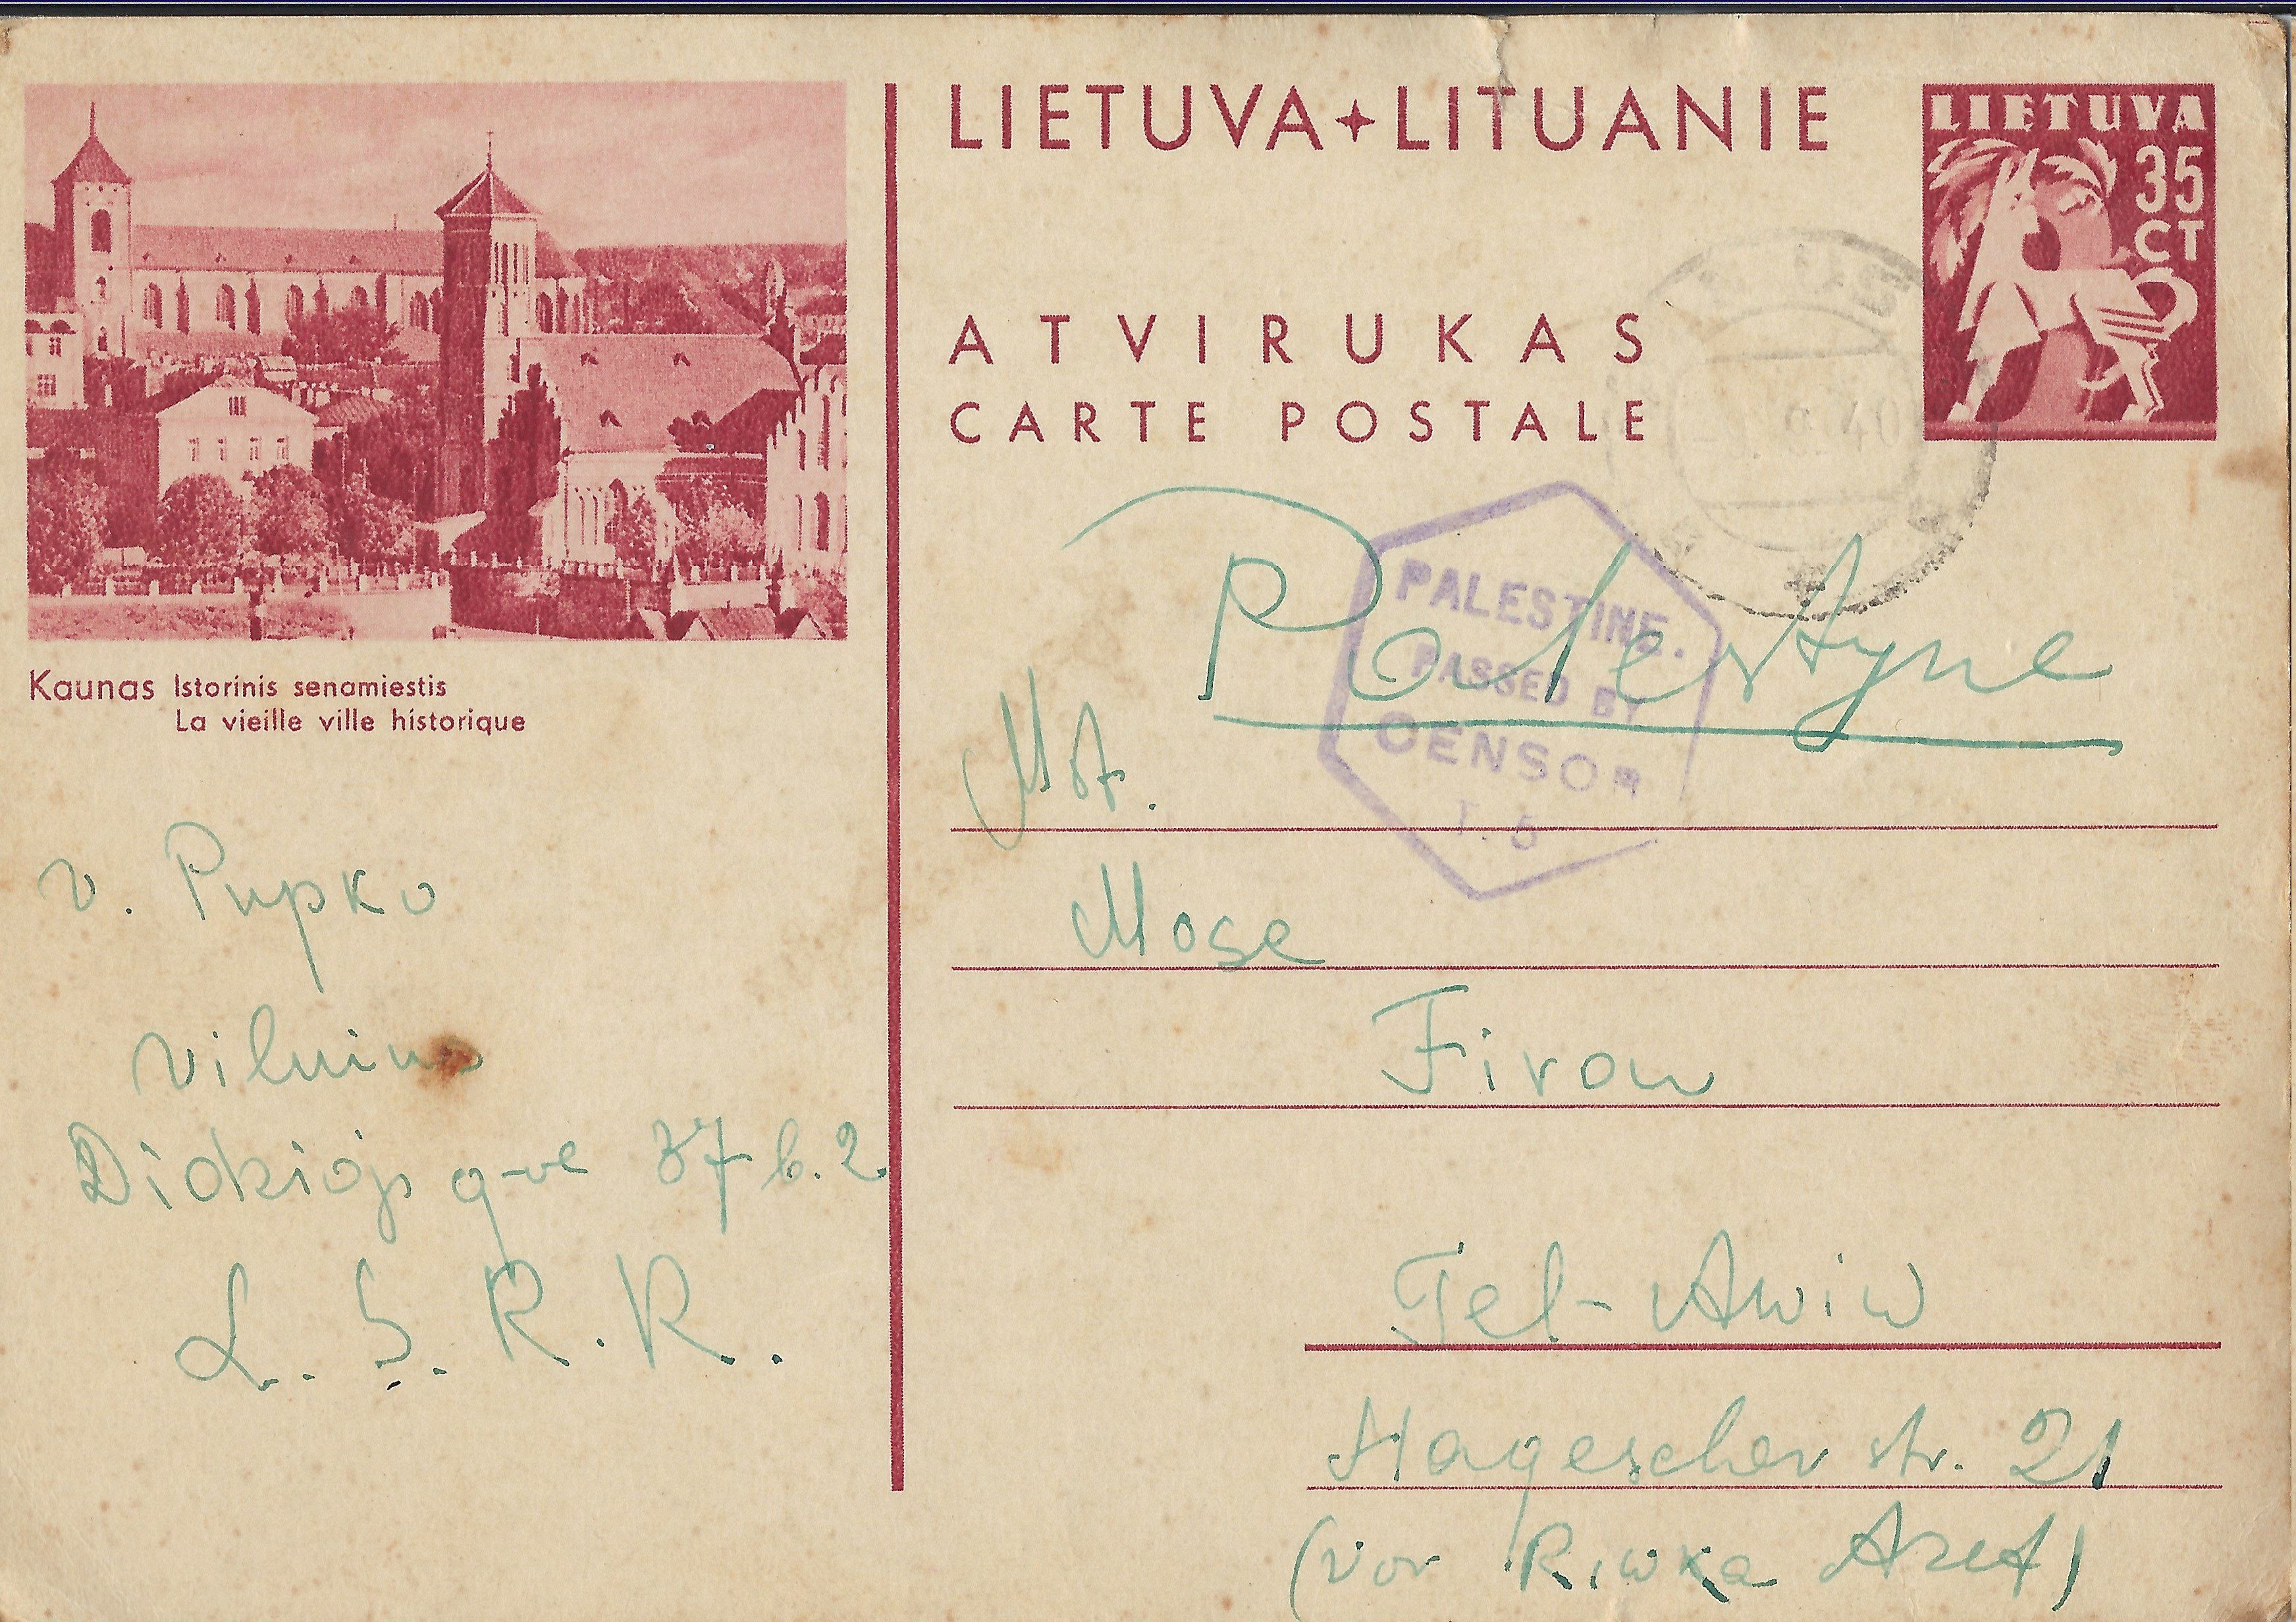 LIETUVA+LITUANIE
LIETUVA
35
CT
ATVIRUKAS
CARTE POSTALE
Kaunas Istorinis senamiestis
La vieille ville historique
PALESTINE.
PASSED BY
CENSOR
T. 5
Palestyne
Mose
Firow
Tel-Awiw
str. 21
(vor Riwka
v. Pupko
Vilnius
g-ve 37 b. 2
L. S. R. R.